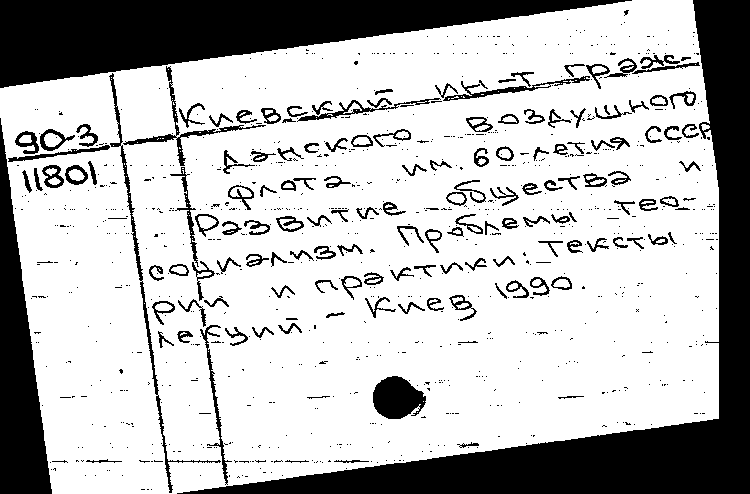 90-3
11801
Киевский ин-т граж-
данского воздушного
флота им. 60-летия СССР
Развитие общества и
социализм. Проблемы тео-
рии и практики: Тексты
лекций. - Киев 1990.